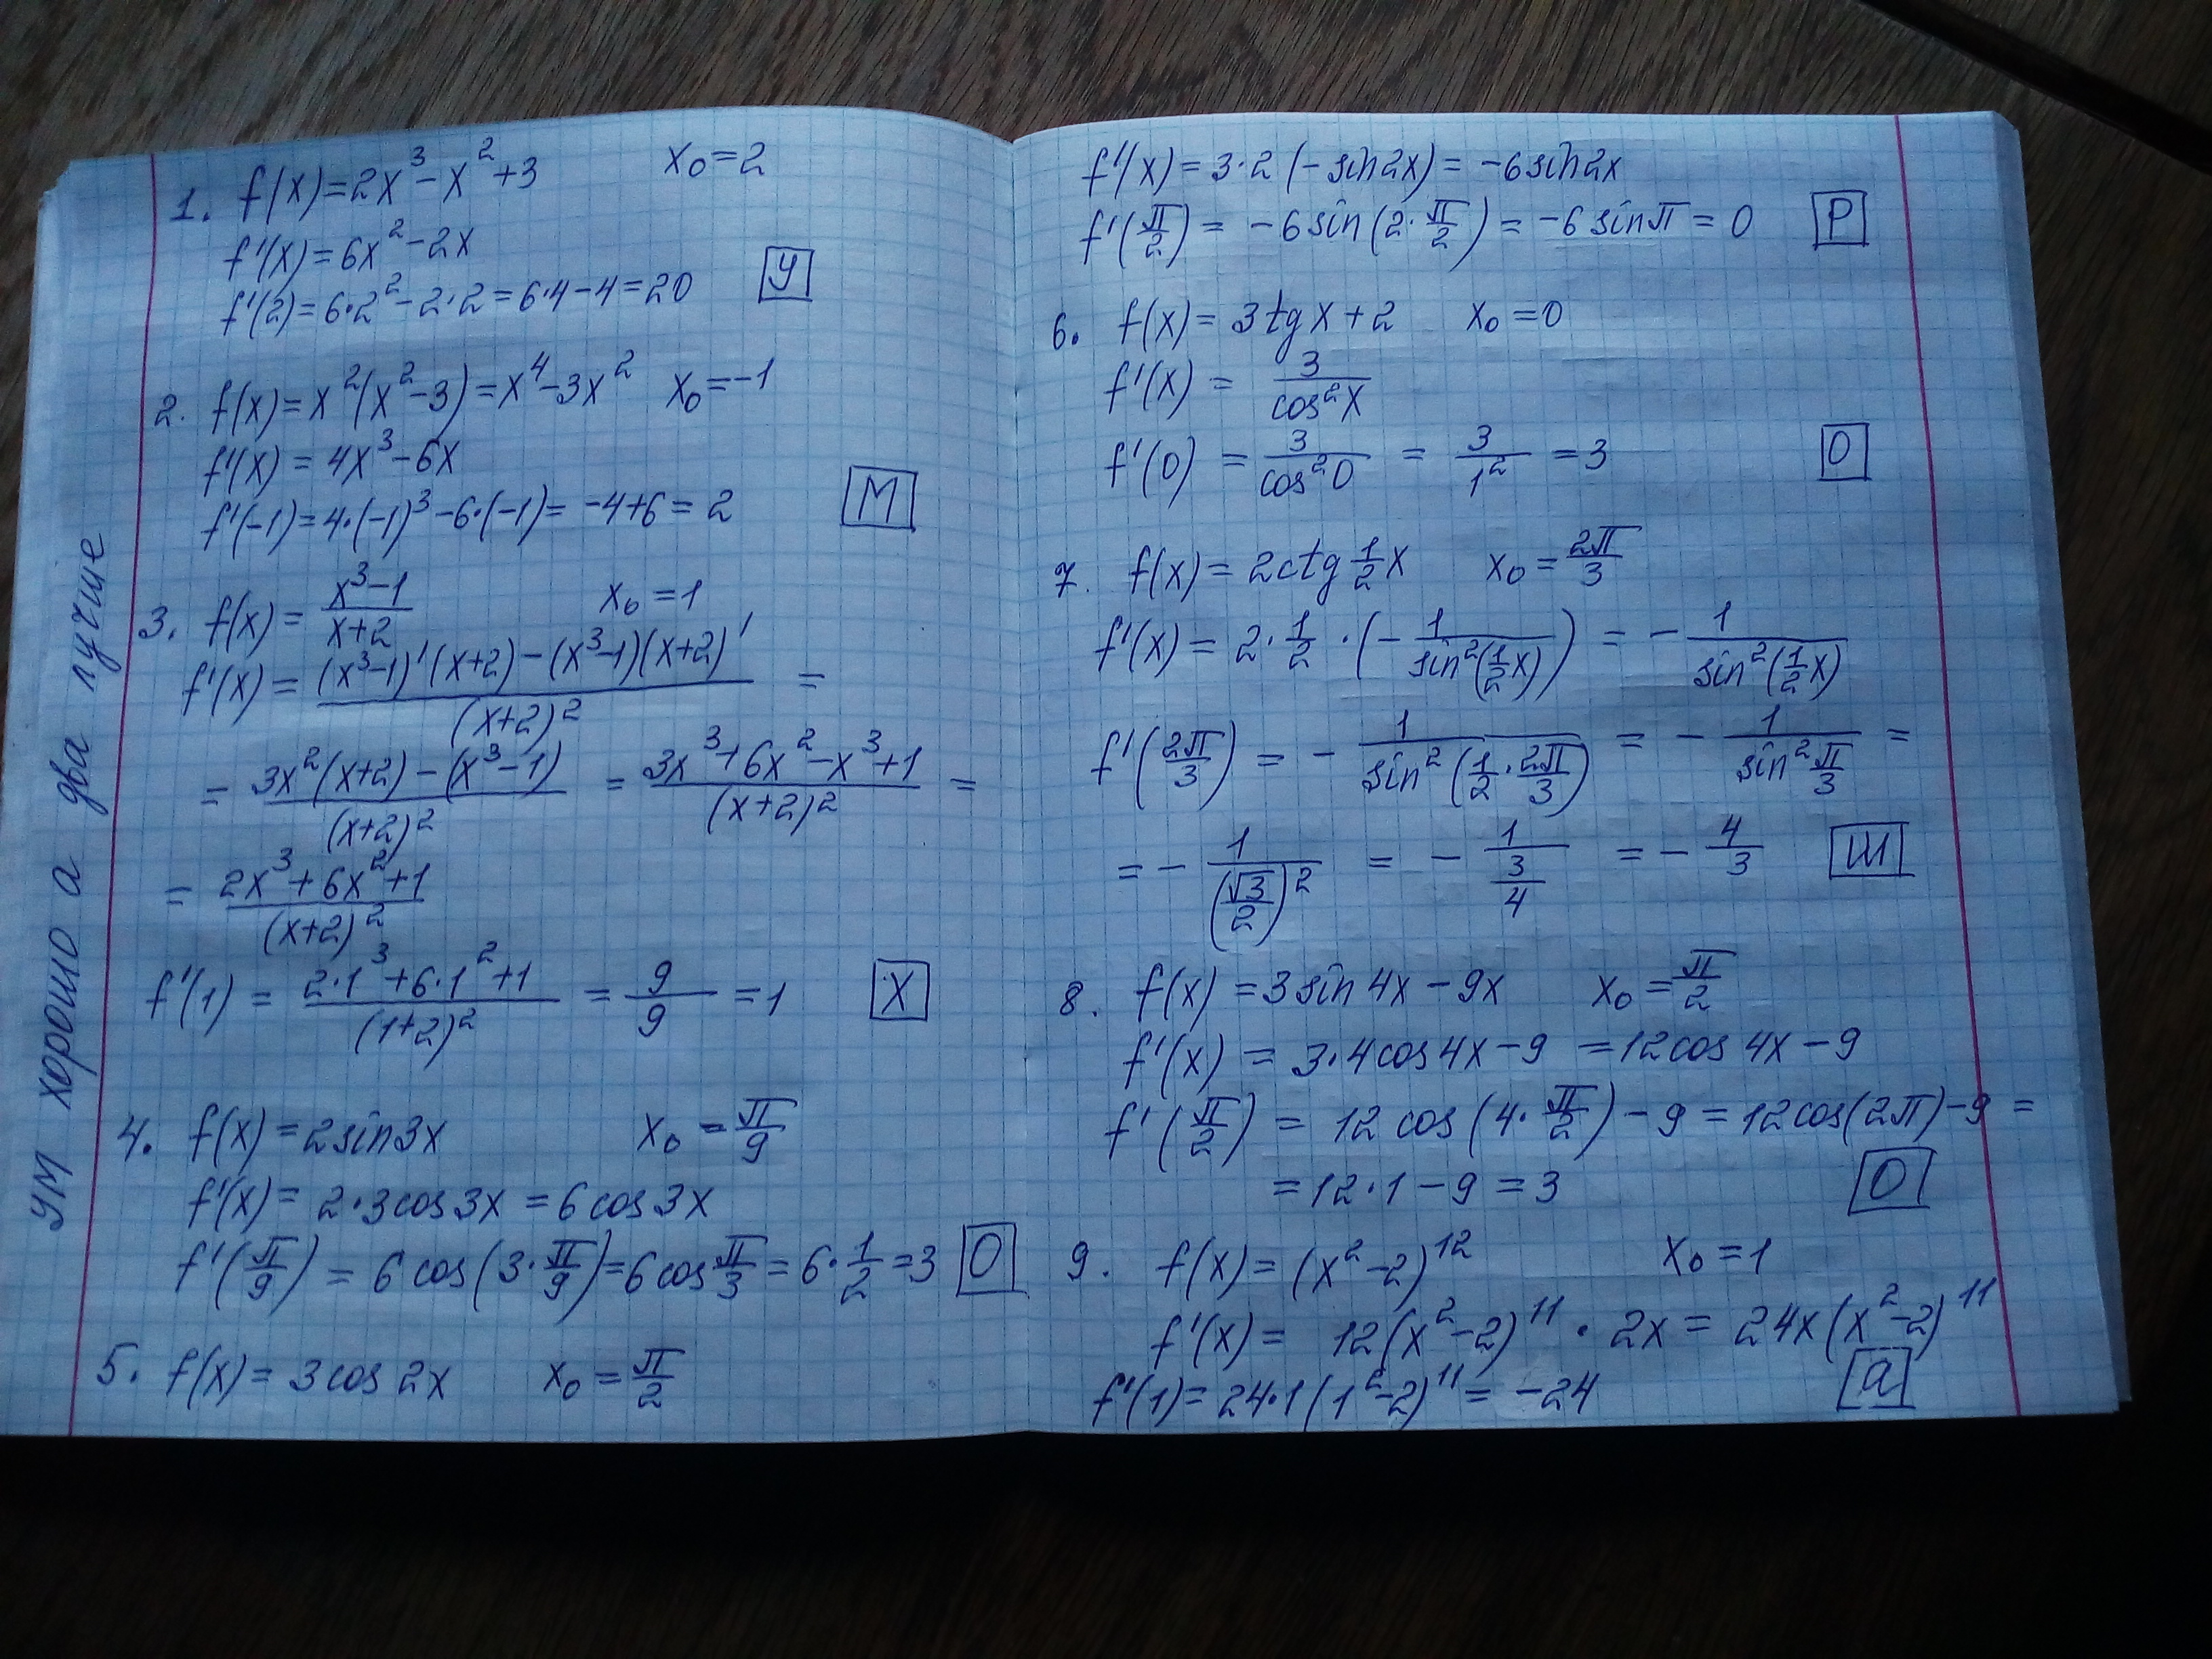 ум хорошо а два лучше
1. f(x)=2x³-x²+3 x₀=2
f'(x)=6x²-2x
f'(2)=6·2²-2·2=6·4-4=20 У
2. f(x)=x²(x²-3)=x⁴-3x² x₀=-1
f'(x)=4x³-6x
f'(-1)=4·(-1)³-6·(-1)=-4+6=2 М
3. f(x)=(x³-1)/(x+2) x₀=1
f'(x)=((x³-1)'(x+2)-(x³-1)(x+2)')/(x+2)² =
= (3x²(x+2)-(x³-1))/(x+2)² = (3x³+6x²-x³+1)/(x+2)² =
= (2x³+6x²+1)/(x+2)²
f'(1) = (2·1³+6·1²+1)/(1+2)² = 9/9 = 1 Х
4. f(x)=2sin3x x₀=π/9
f'(x)=2·3cos3x=6cos3x
f'(π/9)=6cos(3·π/9)=6cosπ/3=6·1/2=3 О
5. f(x)=3cos2x x₀=π/2
f'(x)=3·2(-sin2x)=-6sin2x
f'(π/2)=-6sin(2·π/2)=-6sinπ=0 Р
6. f(x)=3tgx+2 x₀=0
f'(x)=3/cos²x
f'(0)=3/cos²0=3/1²=3 О
7. f(x)=2ctg1/2x x₀=2π/3
f'(x)=2·1/2·(-1/sin²(1/2x))=-1/sin²(1/2x)
f'(2π/3)=-1/sin²(1/2·2π/3)=-1/sin²π/3=
=-1/(√3/2)²=-1/(3/4)=-4/3 Ш
8. f(x)=3sin4x-9x x₀=π/2
f'(x)=3·4cos4x-9=12cos4x-9
f'(π/2)=12cos(4·π/2)-9=12cos(2π)-9=
=12·1-9=3 О
9. f(x)=(x²-2)¹² x₀=1
f'(x)=12(x²-2)¹¹·2x=24x(x²-2)¹¹
f'(1)=24·1(1²-2)¹¹=-24 а